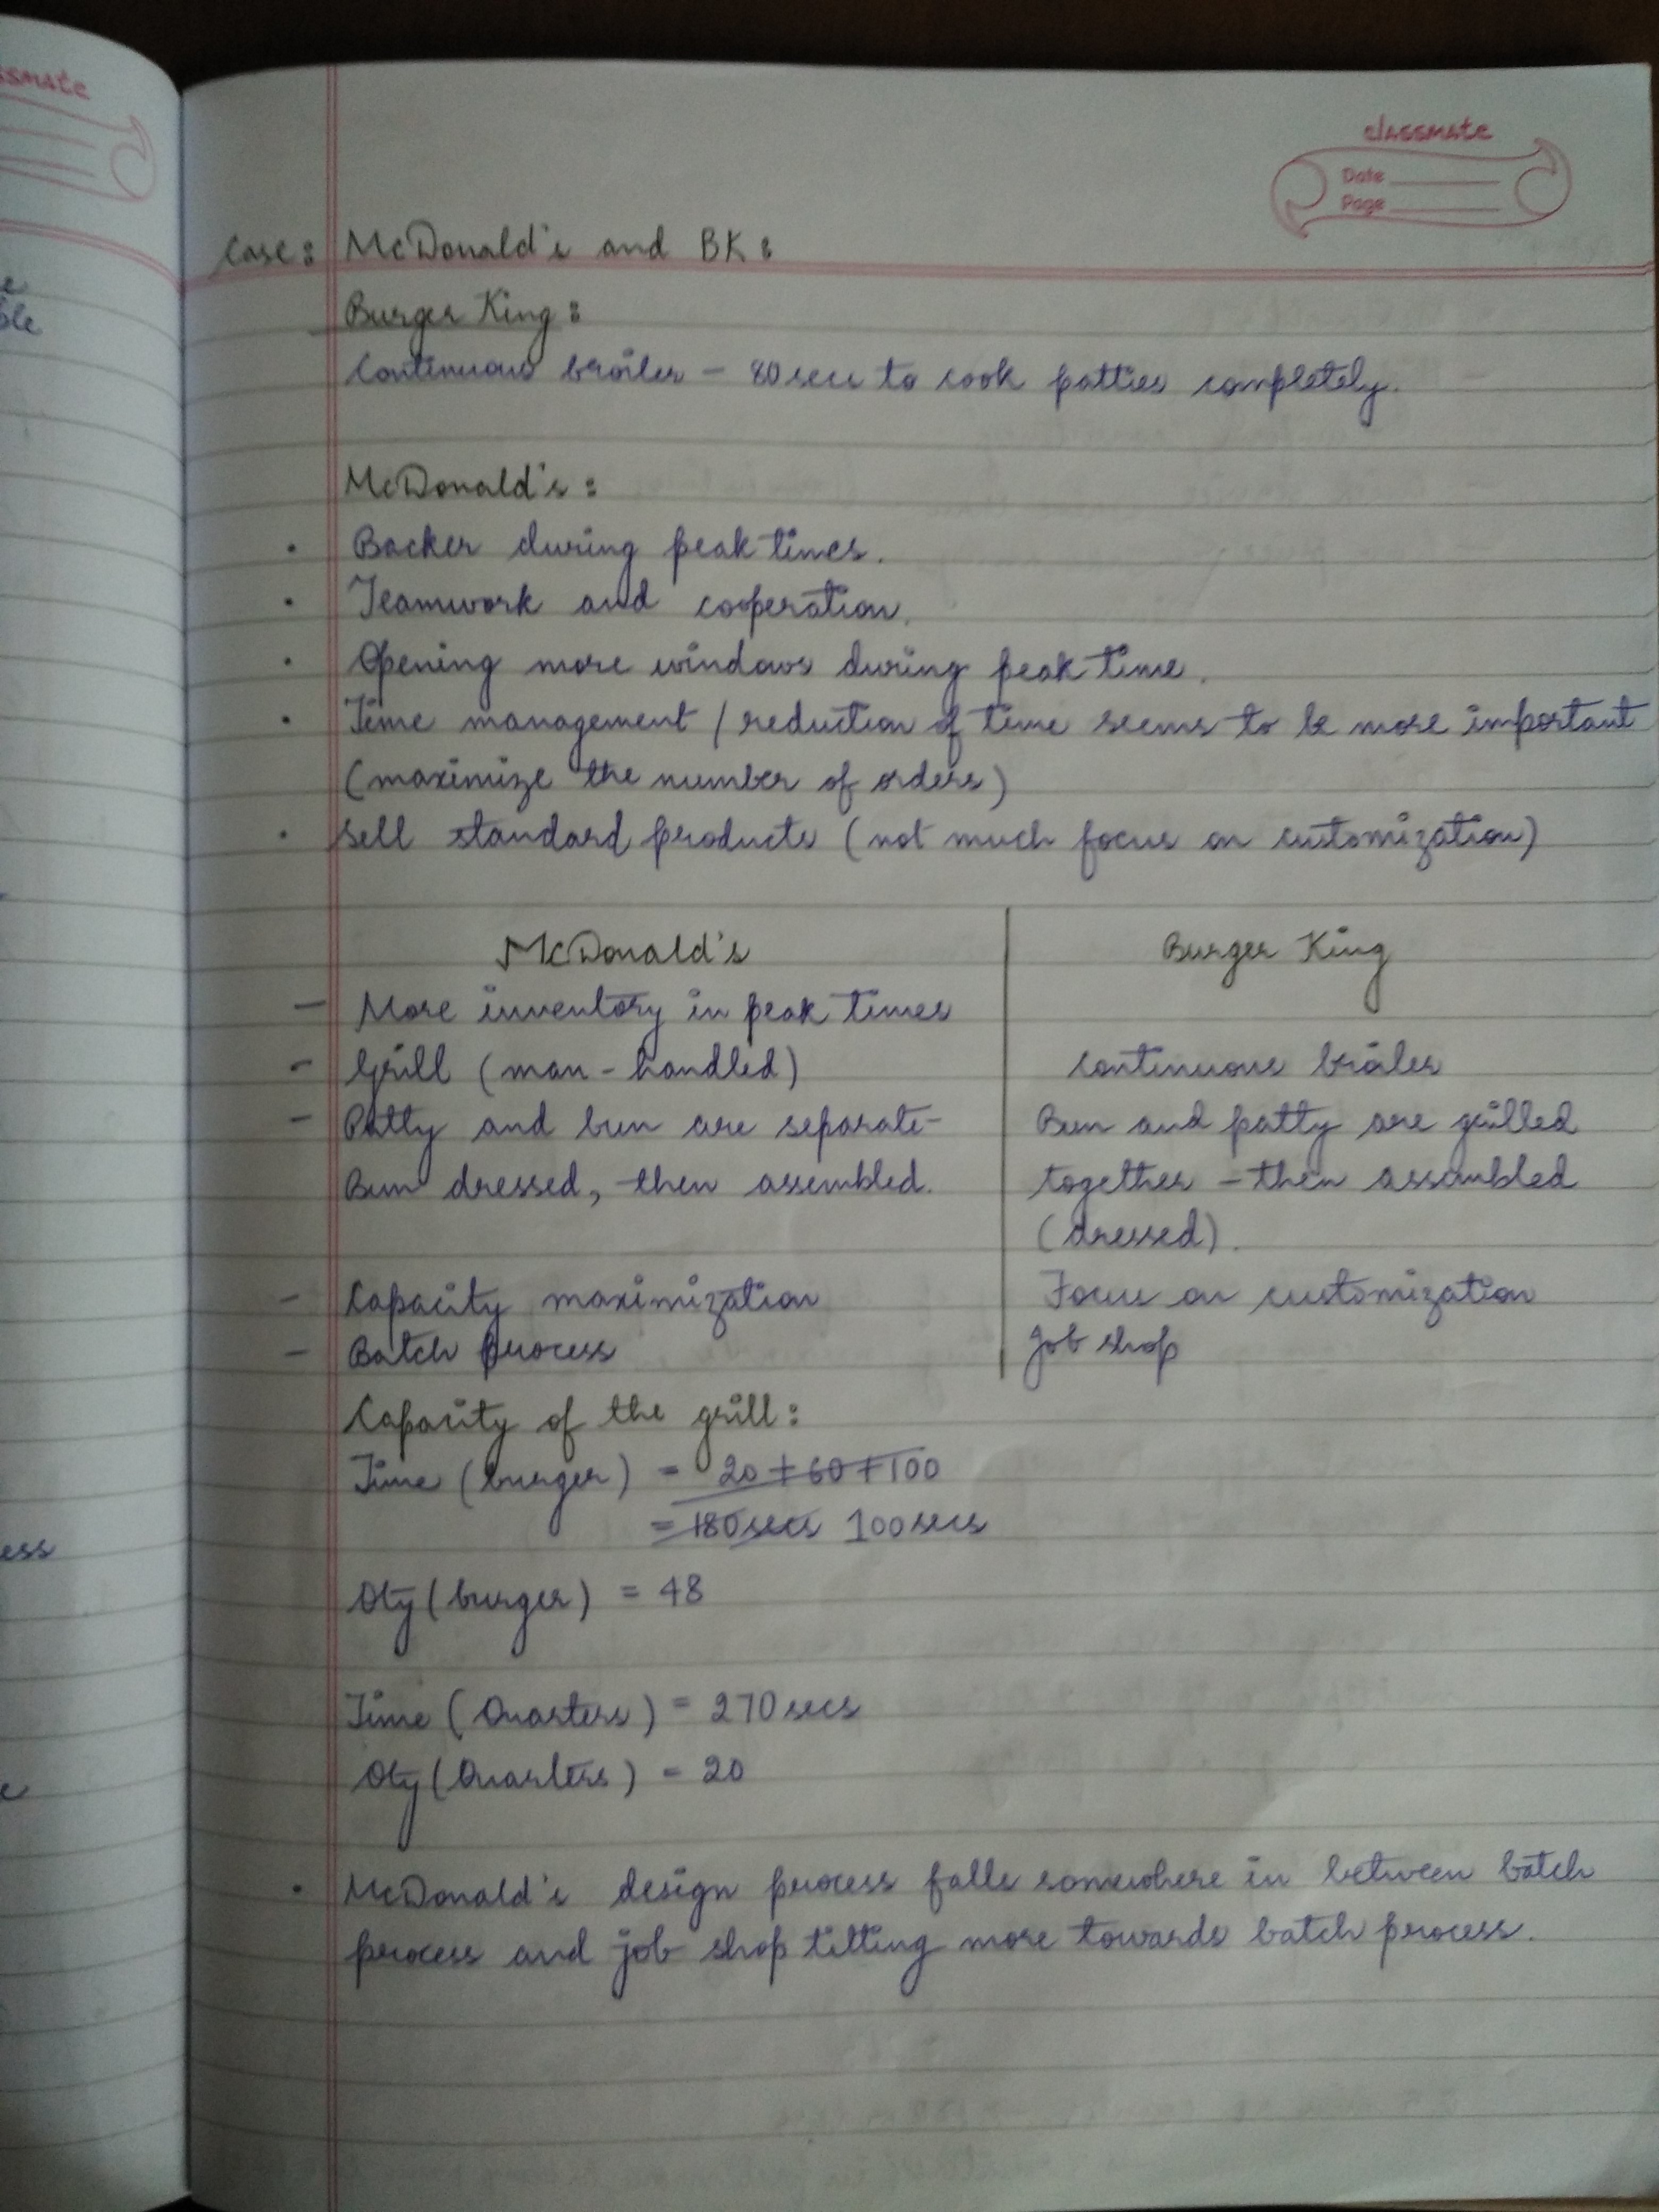 ssmate
e
ble
ess
e
classmate
Date
Page
Case: McDonald's and BK:
Burger King:
Continuous broiler - 80 secs to cook patties completely.
McDonald's:
• Backer during peak times.
• Teamwork and cooperation.
• Opening more windows during peak time.
• Time management / reduction of time seems to be more important
(maximize the number of orders)
• Sell standard products (not much focus on customization)
McDonald's | Burger King
- More inventory in peak times
- Grill (man-handled) | Continuous broiler
- Patty and bun are separate- | Bun and patty are grilled
Bun dressed, then assembled. | together - then assembled
(dressed).
- Capacity maximization | Focus on customization
- Batch process | Job shop
Capacity of the grill:
Time (burger) = 20 + 60 + 100
= 180 secs 100 secs
Qty (burger) = 48
Time (Quarters) = 270 secs
Qty (Quarters) = 20
• McDonald's design process falls somewhere in between batch
process and job shop tilting more towards batch process.